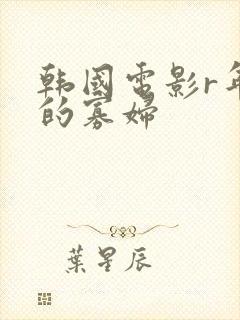 韩國電影r年
的寡婦
葉星辰